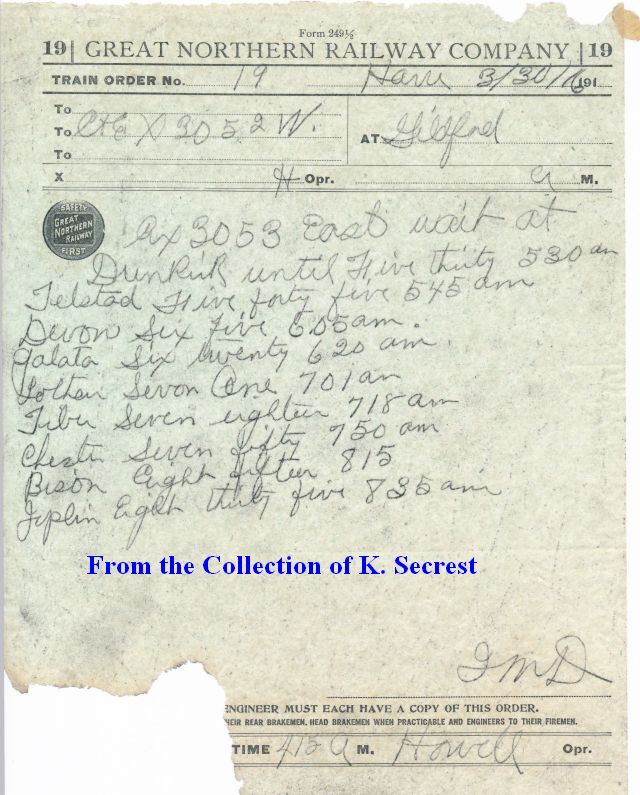 Form 249½
19 | GREAT NORTHERN RAILWAY COMPANY | 19
TRAIN ORDER No. 19 Havre 3/30/16 191
To
To C&E X 3052 W. AT Gildford
To
X H Opr. a M.
SAFETY
GREAT NORTHERN RAILWAY
FIRST
Ex 3053 East wait at
Dunkirk until Five thirty 530 am
Telstad Five forty five 545 am
Devon Six five 605 am.
Galata Six twenty 620 am.
Lothair Seven One 701 am
Tiber Seven eighteen 718 am
Chester Seven fifty 750 am
Bison Eight fifteen 815
Joplin Eight thirty five 835 am
From the Collection of K. Secrest
J M D
ENGINEER MUST EACH HAVE A COPY OF THIS ORDER.
HEIR REAR BRAKEMEN, HEAD BRAKEMEN WHEN PRACTICABLE AND ENGINEERS TO THEIR FIREMEN.
TIME 415 a M. Howell Opr.